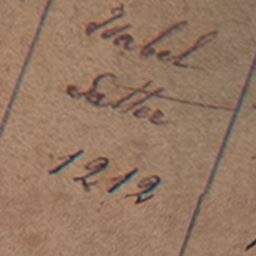 Isabel
Sutter
1212